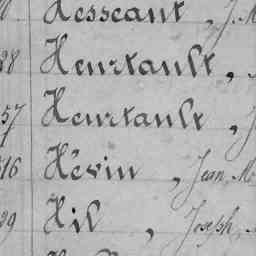 Hesseant, J. M
28 Heurtault,
57 Heurtault, J
16 Hévin, Jean, M
29 Hil, Joseph,